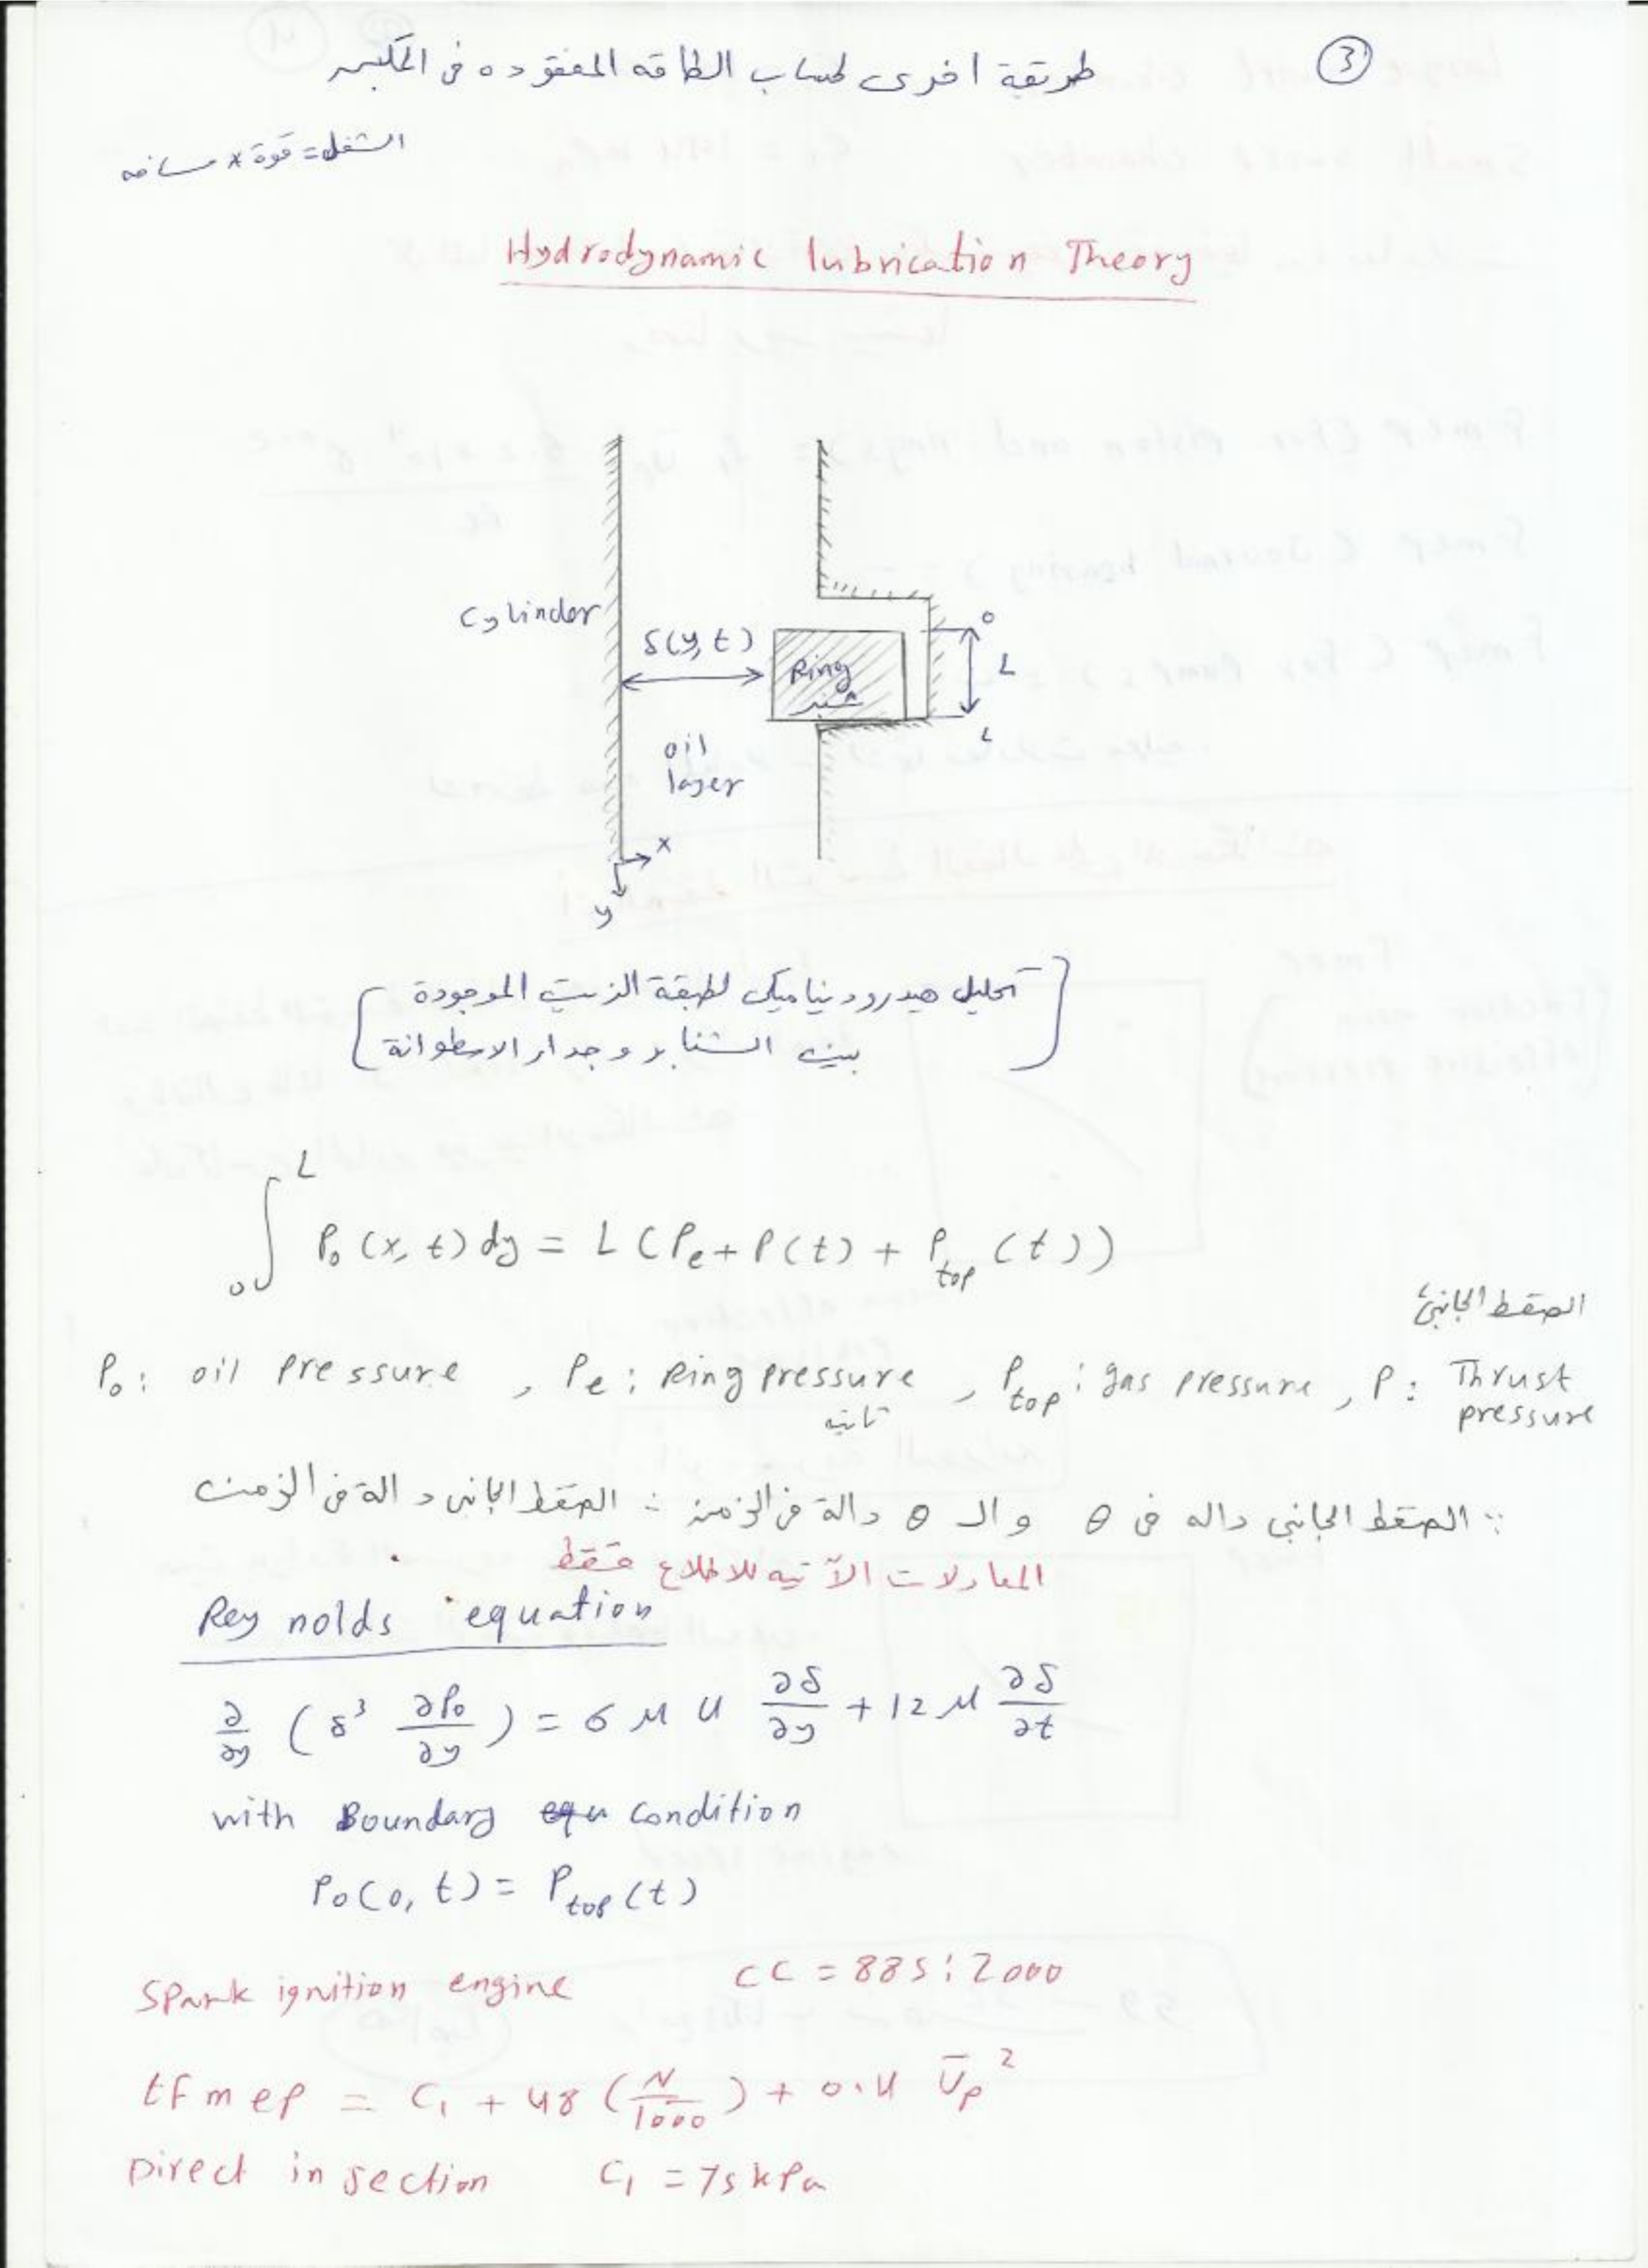 3
طريقة اخرى لحساب الطاقه المفقوده فى المكبس
الشغل = قوة * مسافه
Hydrodynamic lubrication Theory
Cylinder
δ(y, t)
Ring
شنبر
o
L
L
oil
layer
x
y
تحليل هيدروديناميكى لطبقة الزيت الموجودة
بين الشنابر وجدار الاسطوانة
∫₀ᴸ P₀ (x, t) dy = L (Pe + P(t) + Ptop (t))
الضغط الجانبى
P₀ : oil pressure , Pe : Ring pressure , Ptop : gas pressure , P : Thrust pressure
∵ الضغط الجانبى داله فى θ والـ θ دالة فى الزمن ∴ الضغط الجانبى دالة فى الزمن
المعادلات الآتيه للاطلاع فقط
Reynolds equation
∂/∂y (δ³ ∂P₀/∂y) = 6 μ U ∂δ/∂y + 12 μ ∂δ/∂t
with Boundary condition
P₀(0, t) = Ptop (t)
Spark ignition engine CC = 885 : 2000
tfmep = C₁ + 48 (N/1000) + 0.4 Ūp²
Direct injection C₁ = 75 kPa